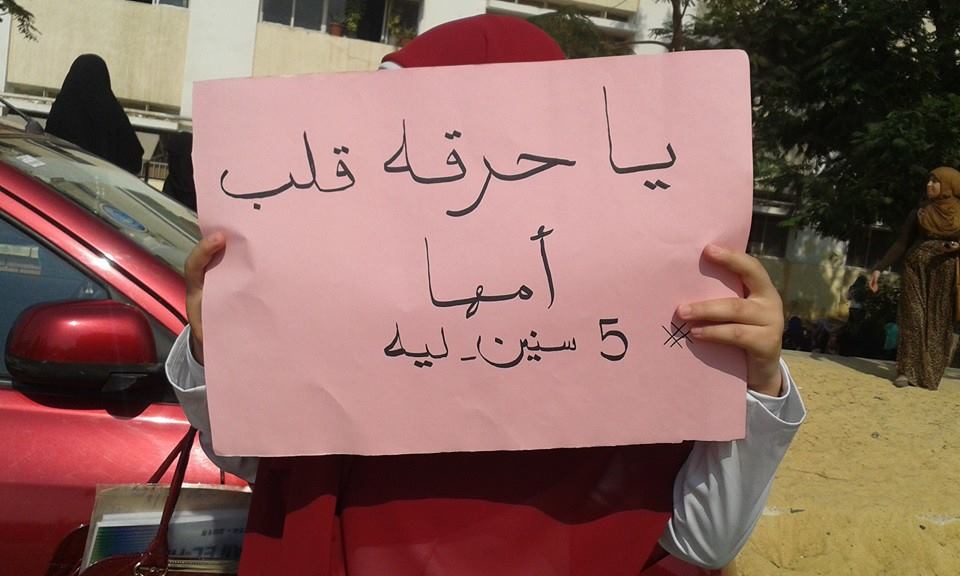 يا حرقه قلب
أمها
* 5 سنين ـ ليه